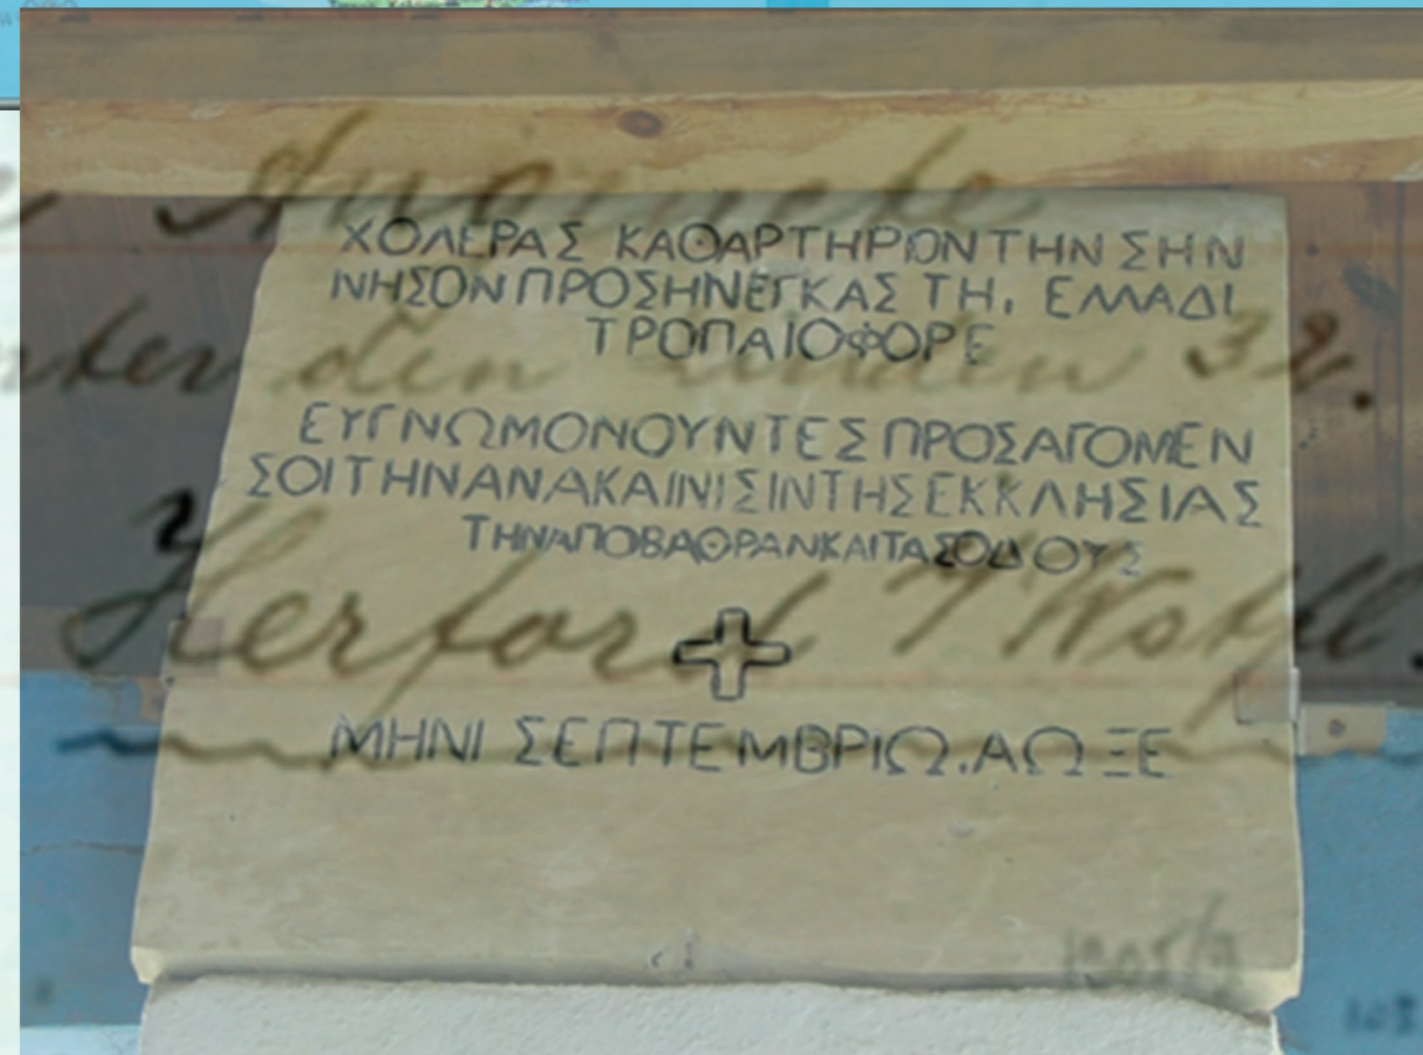 ΧΟΛΕΡΑΣ ΚΑΘΑΡΤΗΡΙΟΝ ΤΗΝ ΣΗΝ
ΝΗΣΟΝ ΠΡΟΣΗΝΕΓΚΑΣ ΤΗ, ΕΛΛΑΔΙ
ΤΡΟΠΑΙΟΦΟΡΕ
den Linden 32.
ΕΥΓΝΩΜΟΝΟΥΝΤΕΣ ΠΡΟΣΑΓΟΜΕΝ
ΣΟΙ ΤΗΝ ΑΝΑΚΑΙΝΙΣΙΝ ΤΗΣ ΕΚΚΛΗΣΙΑΣ
ΤΗΝ ΑΠΟΒΑΘΡΑΝ ΚΑΙ ΤΑΣ ΟΔΟΥΣ
Herford
ΜΗΝΙ ΣΕΠΤΕΜΒΡΙΩ.ΑΩΞΕ